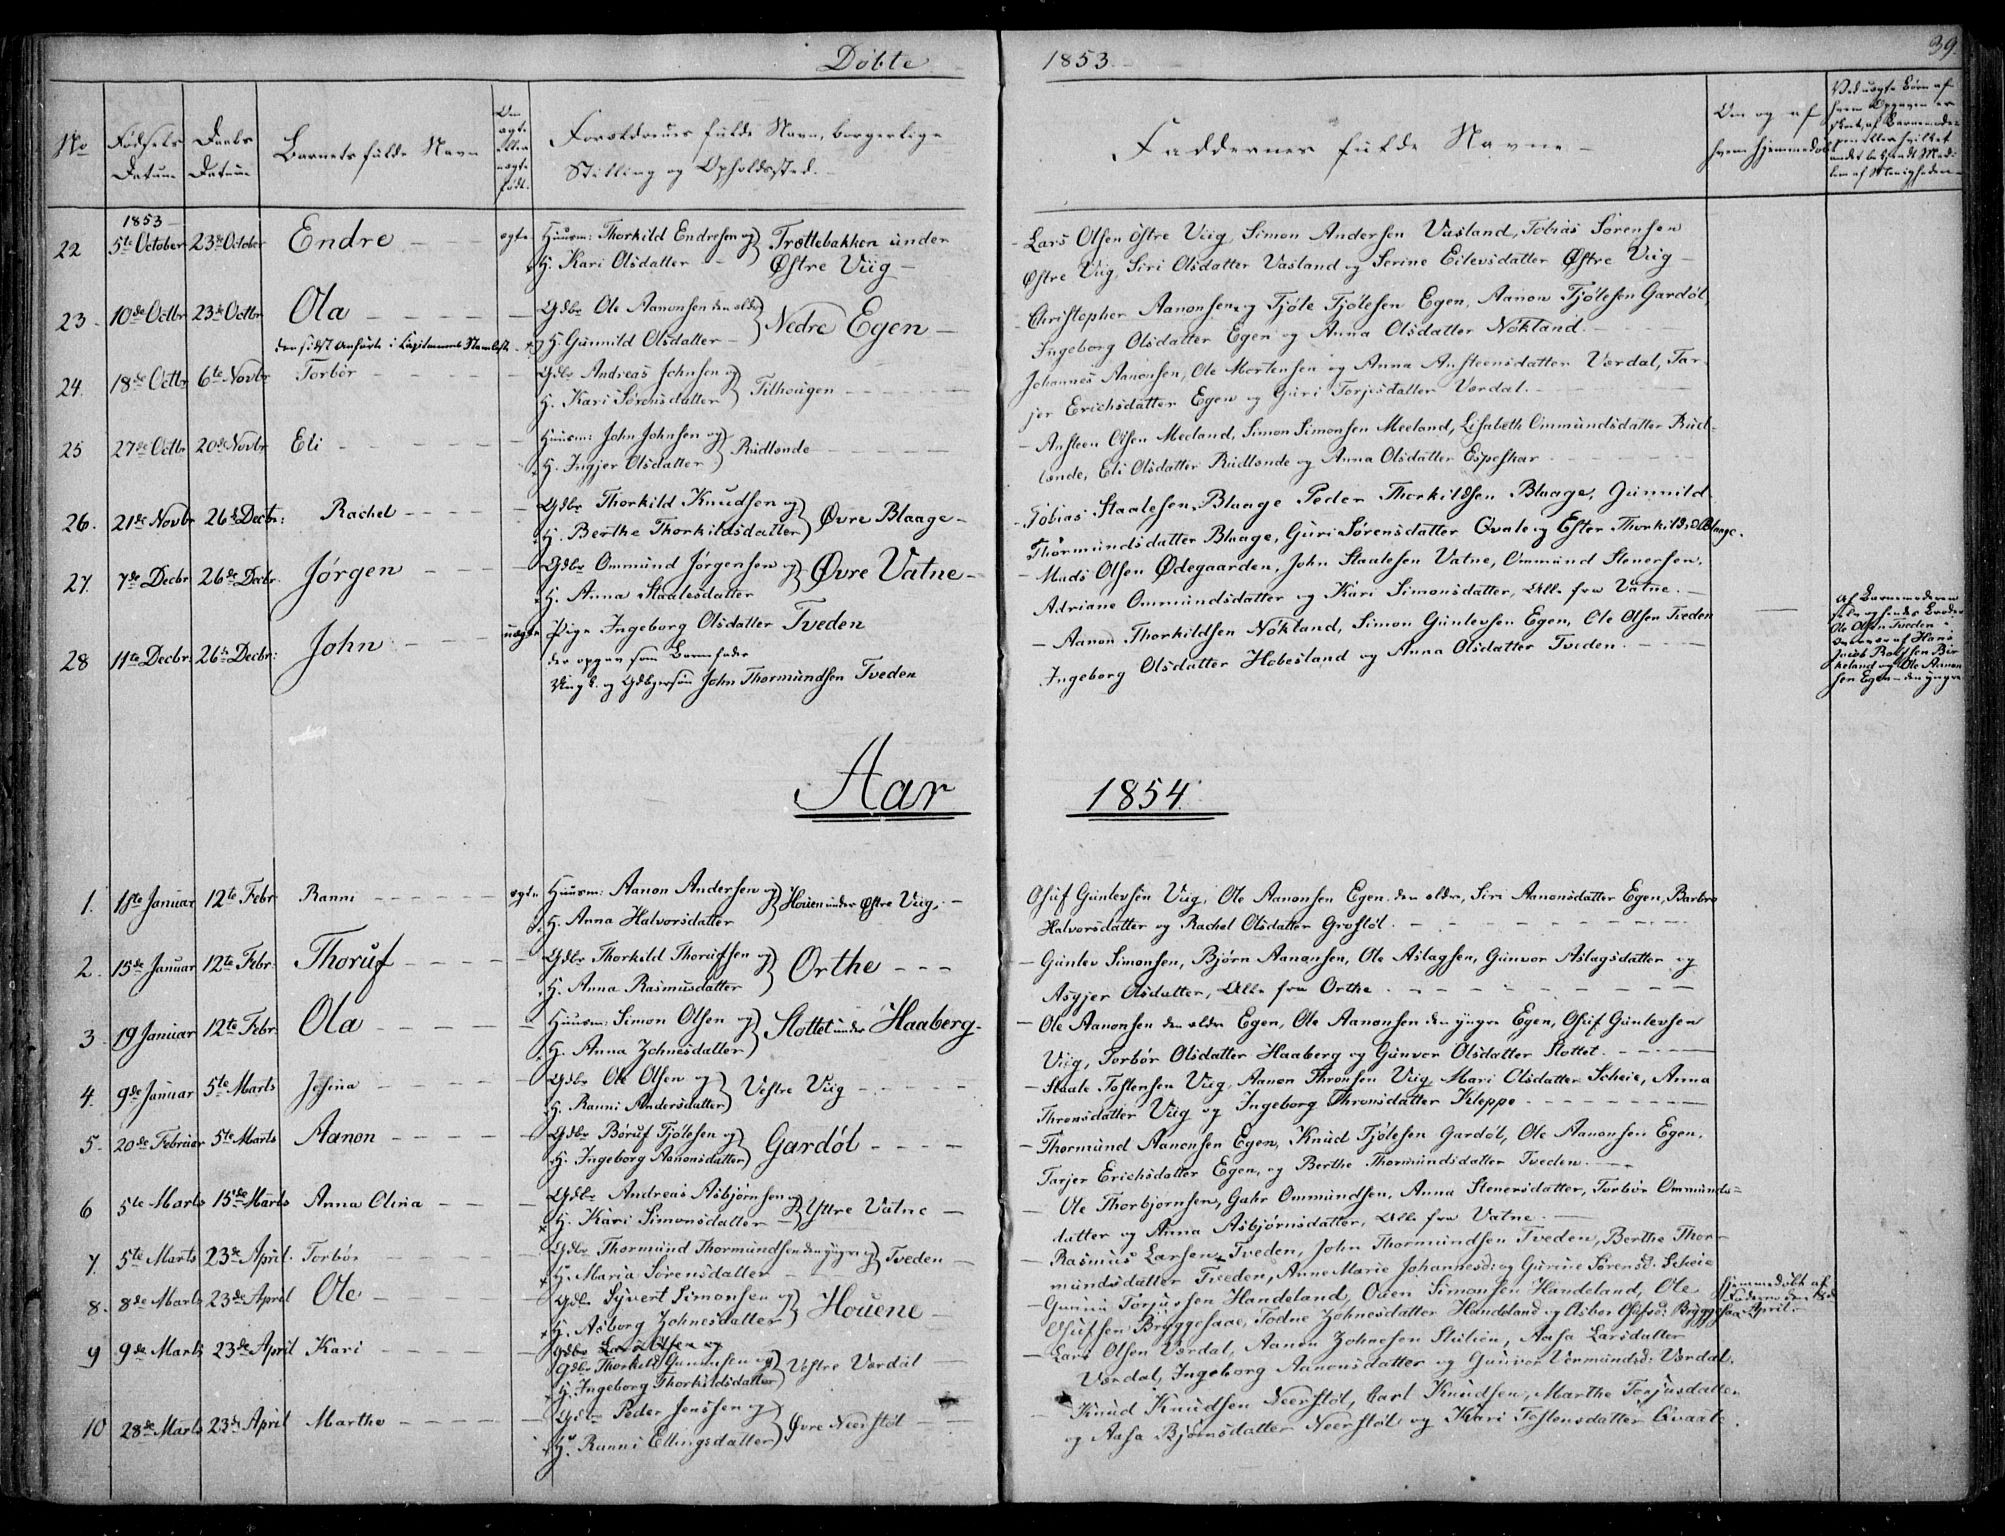 Døbte
1853
39.
No
Fødsels Datum
Daabs Datum
Barnets fulde Navn
Om ægte eller uægte født.
Forældrenes fulde Navn, borgerlige
Stilling og Opholdssted.
Faddernes fulde Navne
Om og af
hvem hjemmedøbt
1853
22 5te October 23de October Endre ægte Huusm: Thorkild Endresen og Trættebakken under
H. Kari Olsdatter Østre Viig
Lars Olsen Østre Viig, Simon Andersen Vasland, Tobias Sørensen
Østre Viig, Siri Olsdatter Vasland og Serine Eilevsdatter Østre Viig
23 10de Octbr 23de Octbr Ola Gdbr Ole Aanonsen den ældre Nedre Egen
H. Gunnild Olsdatter
Christopher Aanonsen og Tjøle Tjølesen Egen, Aanon Tjølesen Gardøl
Ingeborg Olsdatter Egen og Anna Olsdatter Nökland.
24. 18de Octbr 6te Novbr Torbør Gdbr Andreas Johnsen og
H. Kari Sørensdatter Tilhougen
Johannes Aanonsen, Ole Mortensen og Anna Ansteensdatter Værdal, Tar-
jer Erichsdatter Egen og Guri Torjesdatter Værdal.
25 27de Octbr 20de Novbr Eli Huusm: John Johnsen og
H. Ingjer Olsdatter Rudlende
Ansteen Olsen Meeland, Simon Simonsen Meeland, Lisabeth Ommundsdatter Rud-
lende, Eli Olsdatter Rudlende og Anna Olsdatter Espeskar
26. 21de Novbr 26de Decbr: Rachel Gdbr Thorkild Knudsen og
H. Berthe Thorkildsdatter Øvre Blaage
Tobias Staalesen Blaage Peder Thorkildsen Blaage, Gunnild
Thormundsdatter Blaage, Guri Sørensdatter Qvale og Ester Thorkildsd. Blaage.
27. 7de Decbr 26de Decbr. Jørgen Gdbr Ommund Jørgensen og Øvre Vatne
H. Anna Staalesdatter
Mads Olsen Ødegaarden, John Staalesen Vatne, Ommund Stenersen,
Adriane Ommundsdatter og Kari Simonsdatter, Alle fra Vatne.
28 11te Decbr. 26de Decbr: John uægte Pige Ingeborg Olsdatter Tveden
der opgav som Barnefader
Ungk. og Gdbgersøn John Thormundsen Tveden
Aanon Thorkildsen Nökland, Simon Gunlevsen Egen, Ole Olsen Tveden
Ingeborg Olsdatter Hobesland og Anna Olsdatter Tveden.
Af Barnemoderen
selv og hendes Broder
Ole Olsen Tveden i
Overvær af Hans
Jacob Rolfsen Bir-
keland og Ole Aanon-
sen Egen den yngre
Aar 1854.
1. 11te Januar 12te Febr Ranni ægte Huusm: Aanon Andersen og Houen under Østre Viig
H. Anna Halvorsdatter
Osuf Gunlevsen Viig, Ole Aanonsen Egen den ældre, Siri Aanonsdatter Egen, Barbro
Halvorsdatter og Rachel Olsdatter Grostøl.
2. 15de Januar 12te Febr. Thoruf Gdbr Thorkild Thorufsen og Orthe
H. Anna Rasmusdatter
Gunlev Simonsen, Bjørn Aanonsen, Ole Aslagsen, Gunvor Aslagsdatter og
Asgjer Olsdatter, Alle fra Orthe
3. 19 Januar 12te Febr. Ola Huusm: Simon Olsen og Slottet under Haaberg
H. Anna Zohnesdatter
Ole Aanonsen den ældre Egen, Ole Aanonsen den yngre Egen, Osuf Gunlevsen
Viig, Torbør Olsdatter Haaberg og Gunvor Olsdatter Slottet.
4. 9de Januar 5te Marts Jesina Gdbr Ole Olsen og Vestre Viig
H. Ranni Andersdatter
Staale Tostensen Viig, Aanon Thronsen Viig, Mari Olsdatter Scheie, Anna
Thronsdatter Viig og Ingeborg Thronsdatter Kleppe
5. 20de Februar 5te Marts Aanon Gdbr Børuf Tjølesen og Gardøl
H. Ingeborg Aanonsdatter
Thormund Aanonsen Egen, Knud Tjølesen Gardøl, Ole Aanonsen Egen.
Tarjer Erichsdatter Egen, og Berthe Thormundsdatter Tveden.
6 5te Marts 15de Marts Anna Olina Gdbr Andreas Asbjørnsen og Østre Vatne
H. Kari Simonsdatter
Ole Thorbjørnsen, Gahr Ommundsen, Anna Stenersdatter, Torbør Ommunds-
datter og Anna Asbjørnsdatter, Alle fra Vatne.
7. 5te Marts 23de April. Torbør Gdbr Thormund Thormundsen den yngre og Tveden
H. Maria Sørensdatter
Rasmus Larsen Tveden, John Thormundsen Tveden, Berthe Thor-
mundsdatter Tveden, Anne Marie Johannesd: og Gurine Sørensd. Scheie
8. 8de Marts 23de April Ole Gdbr Syvert Simonsen og Houene
H. Asborg Zohnesdatter
Gunun Torjussen Handeland, Ouen Simonsen Handeland, Ole
Osufsen Bryggesaae, Todne Zohnesdatter Handeland og Asbor Osufsd: Bryggesaae
Hjemmedøbt af
Faderen den
April.
9 9de Marts 23de April Kari Gdbr Lars Olsen og
Gdbr Thorkild Gununsen og Vestre Værdal
H. Ingeborg Thorkildsdatter
Lars Olsen Værdal, Aanon Zohnesen Stulien, Aasa Larsdatter
Værdal, Ingeborg Aanonsdatter og Gunvor Vermundsd: Værdal.
10 28de Marts 23de April Marthe Gdbr Peder Jenssen og Øvre Neerstøl
H. Ranni Ellingsdatter
Knud Knudsen Neerstøl, Carl Knudsen, Marthe Torjusdatter
og Aasa Bjørnsdatter Neerstøl, og Kari Tostensdatter Qvaale.